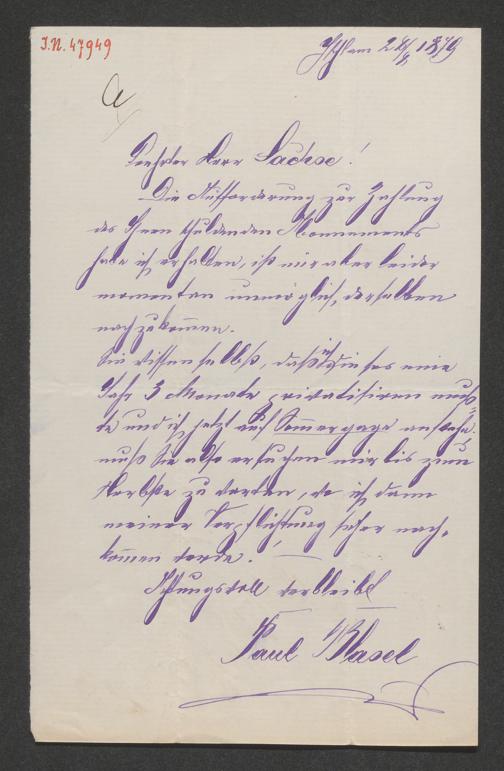 J.N. 47949
Ischl am 24/8 1879
a
Geehrter Herr Sachse!
Die Aufforderung zur Zahlung
des Ihnen schuldenden Abonnements
habe ich erhalten, ist mir aber leider
momentan unmöglich, derselben
nachzukommen.
Sie wissen selbst, daß ich dieses eine
Jahr 3 Monate privatisiren muß=
te und ich jetzt auf Sommergage anstehe.
muß Sie also ersuchen mir bis zum
Herbste zu warten, wo ich dann
meiner Verpflichtung sicher nach-
kommen werde.
Achtungsvoll verbleibt
Paul Blasel